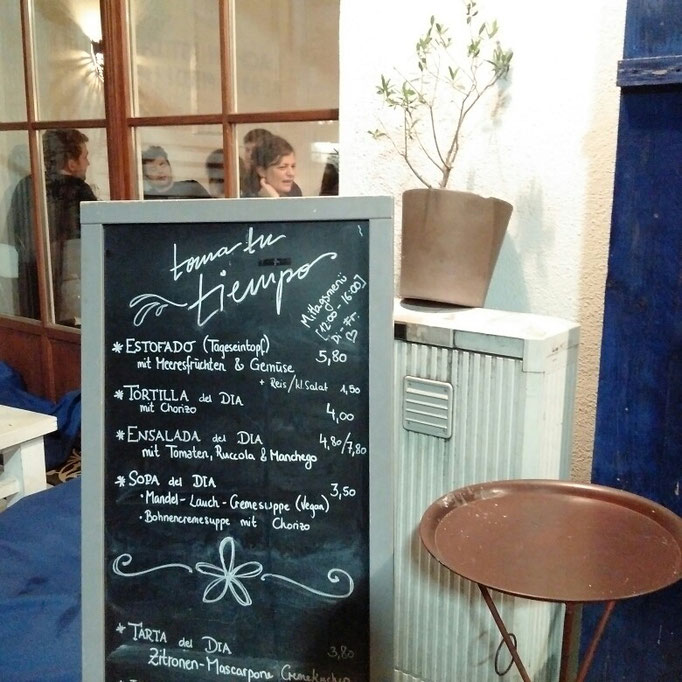 toma tu
tiempo
Mittagsmenü
[12:00 - 16:00]
Di - Fr.
* ESTOFADO (Tageseintopf) 5,80
mit Meeresfrüchten & Gemüse
+ Reis/kl. Salat 1,50
* TORTILLA del DIA 4,00
mit Chorizo
* ENSALADA del DIA 4,80/7,80
mit Tomaten, Ruccola & Manchego
* SOPA del DIA 3,50
• Mandel-Lauch-Cremesuppe (Vegan)
• Bohnencremesuppe mit Chorizo
* TARTA del DIA 3,80
Zitronen-Mascarpone Cremekuchen